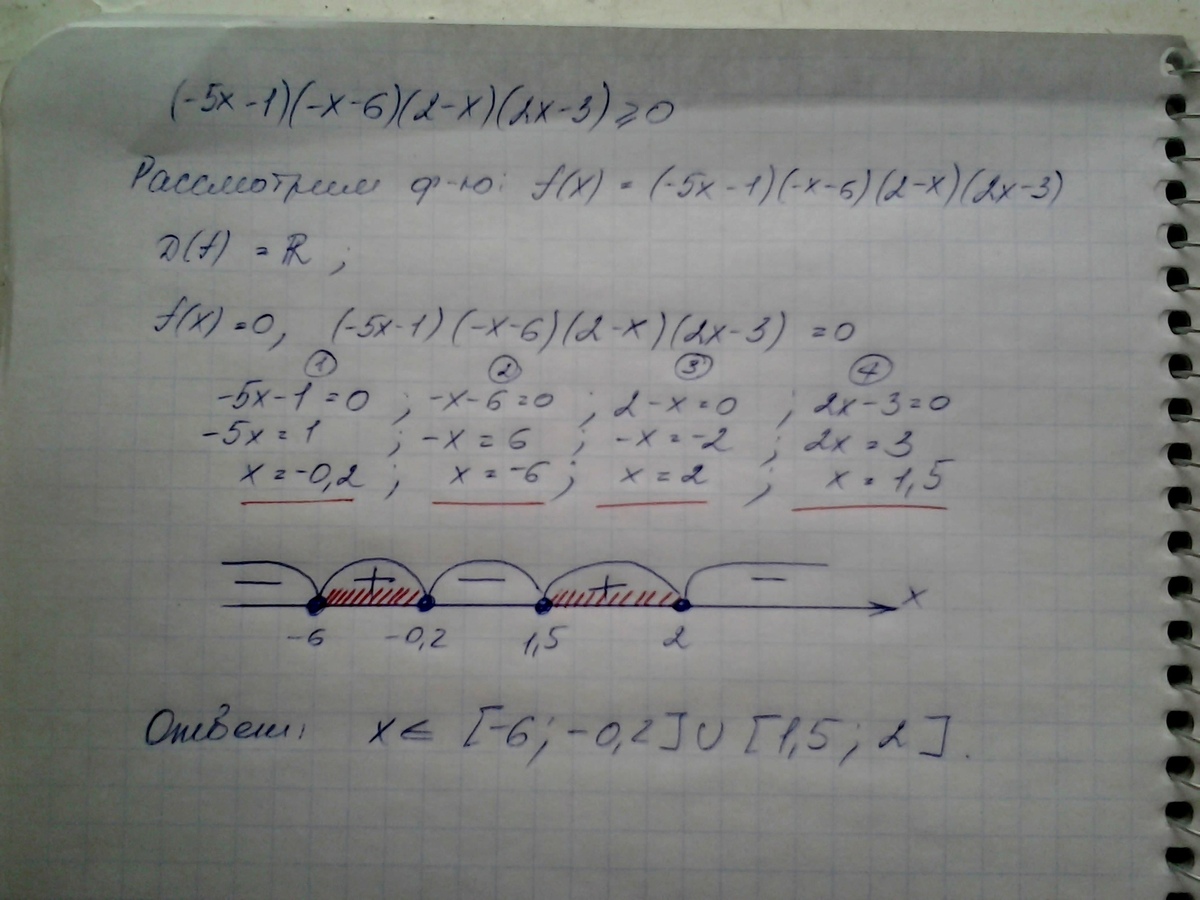 (-5x-1)(-x-6)(2-x)(2x-3)⩾0
Рассмотрим ф-ю: f(x) = (-5x-1)(-x-6)(2-x)(2x-3)
D(f) = ℝ ;
f(x)=0, (-5x-1)(-x-6)(2-x)(2x-3) =0
① ② ③ ④
-5x-1=0 ; -x-6=0 ; 2-x=0 ; 2x-3=0
-5x=1 ; -x=6 ; -x=-2 ; 2x=3
x=-0,2 ; x=-6 ; x=2 ; x=1,5
− + − + − x
-6 -0,2 1,5 2
Ответ: x∈ [-6; -0,2]∪[1,5; 2].